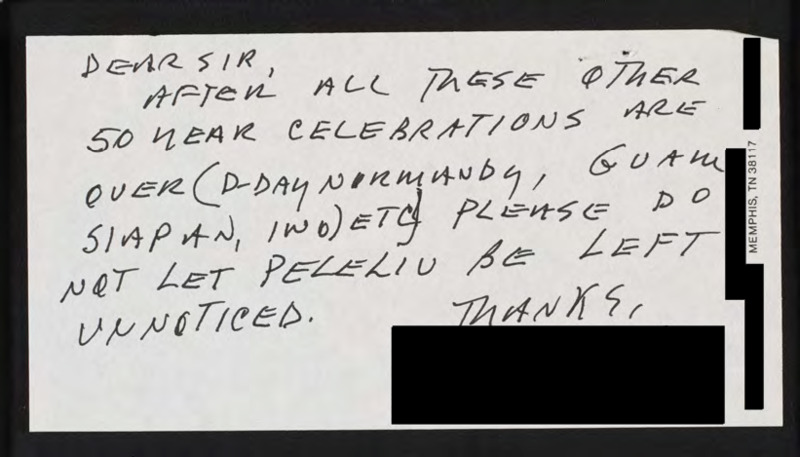 DEAR SIR,
AFTER ALL THESE OTHER
50 YEAR CELEBRATIONS ARE
OVER (D-DAY NORMANDY, GUAM
SIAPAN, IWO) ETC) PLEASE DO
NOT LET PELELIU BE LEFT
UNNOTICED.
THANKS,
MEMPHIS, TN 38117